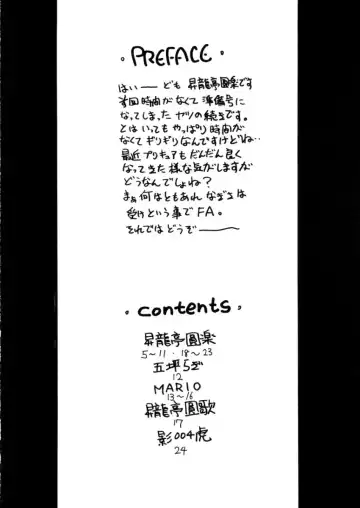 ・PREFACE・
はいー ども 昇龍亭圓楽です
前回時間がなくて準備号に
なってしまったヤツの続きです。
とはいってもやっぱり時間が
なくてギリギリなんですけどね…
最近プリキュアもだんだん良く
なって来た様な気がしますが
どうなんでしょね?
まぁ何はともあれなぎさは
受けという事でFA。
それではどうぞ――
・contents・
昇龍亭圓楽
5〜11・18〜23
五坪らぎ
12
MARIO
13〜16
昇龍亭圓歌
17
影004虎
24